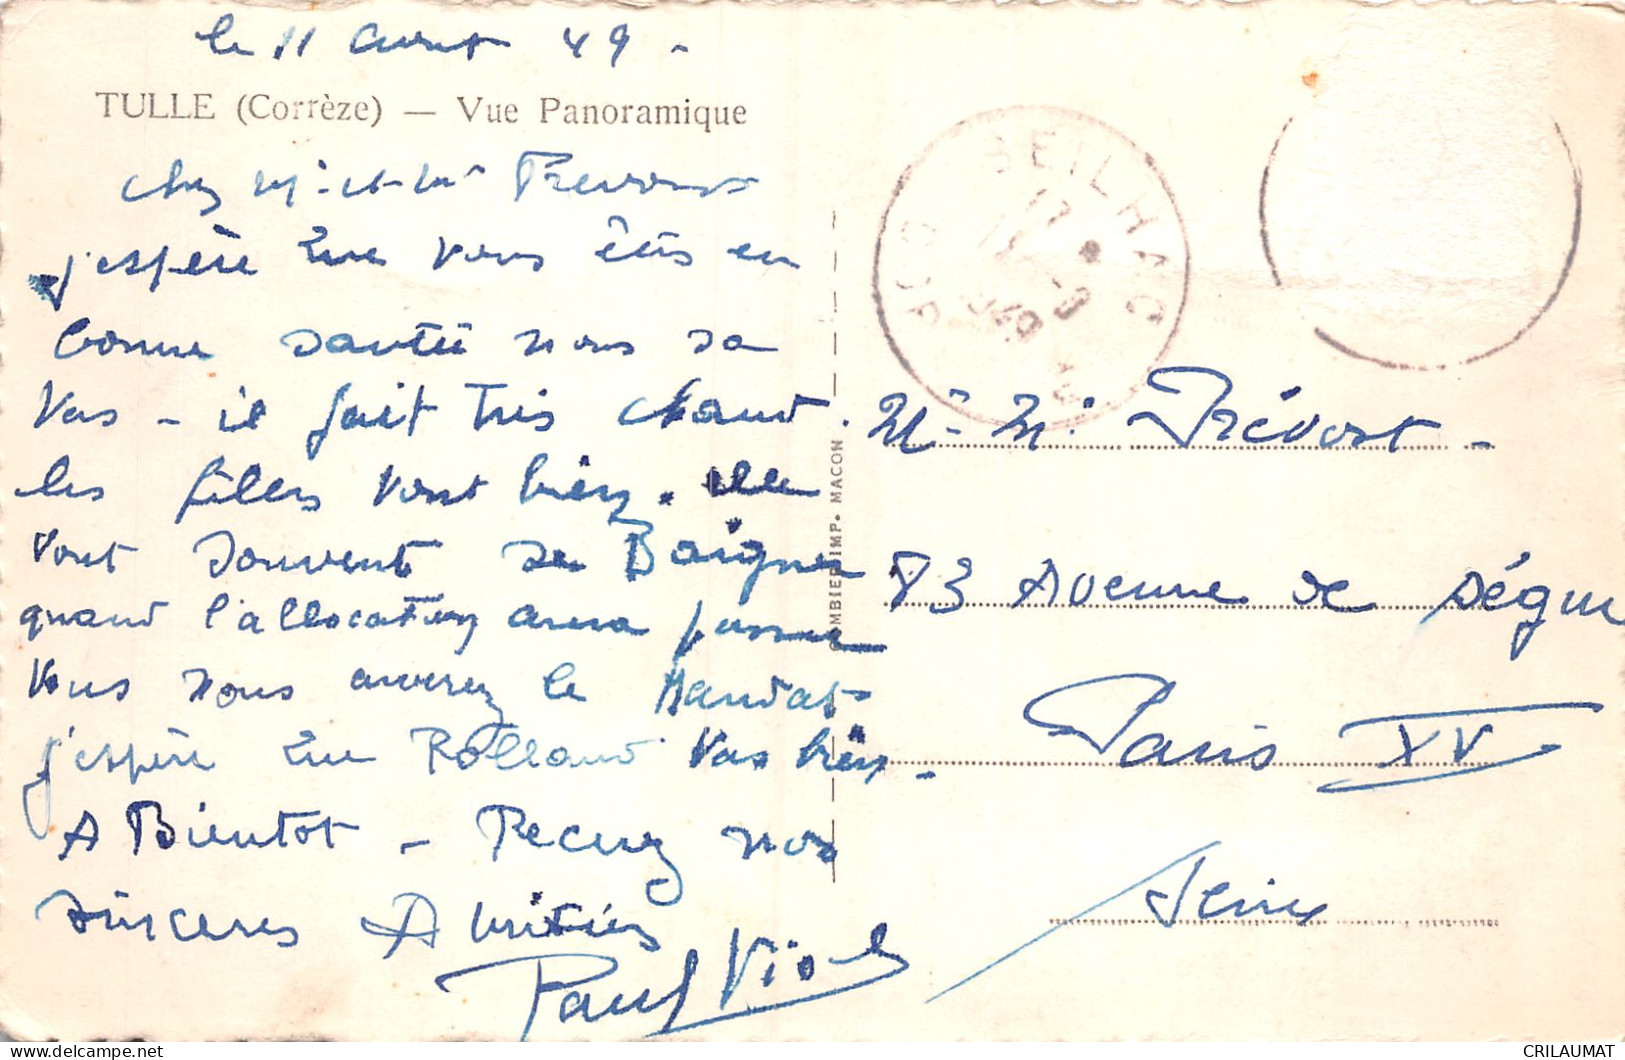 le 11 Aout 49 -
TULLE (Corrèze) — Vue Panoramique
Cher Mr et Me Prevorst
j'espère que vous êtes en
bonne santée nous sa
Vas - il fait très chaud.
les filles vont bien. elle
vont souvent se Baigner
quand l'allocation aura passer
Vous nous averez le Mandat
j'espère que Rolland Vas bien -
A Bientot - Recevez nos
sinceres Amitiés
Paul Viol
SEILHAC
17
GAMBIER IMP. MACON
Mr. Me. Prévost -
83 Avenue de Ségur
Paris XV
Seine
CRILAUMAT